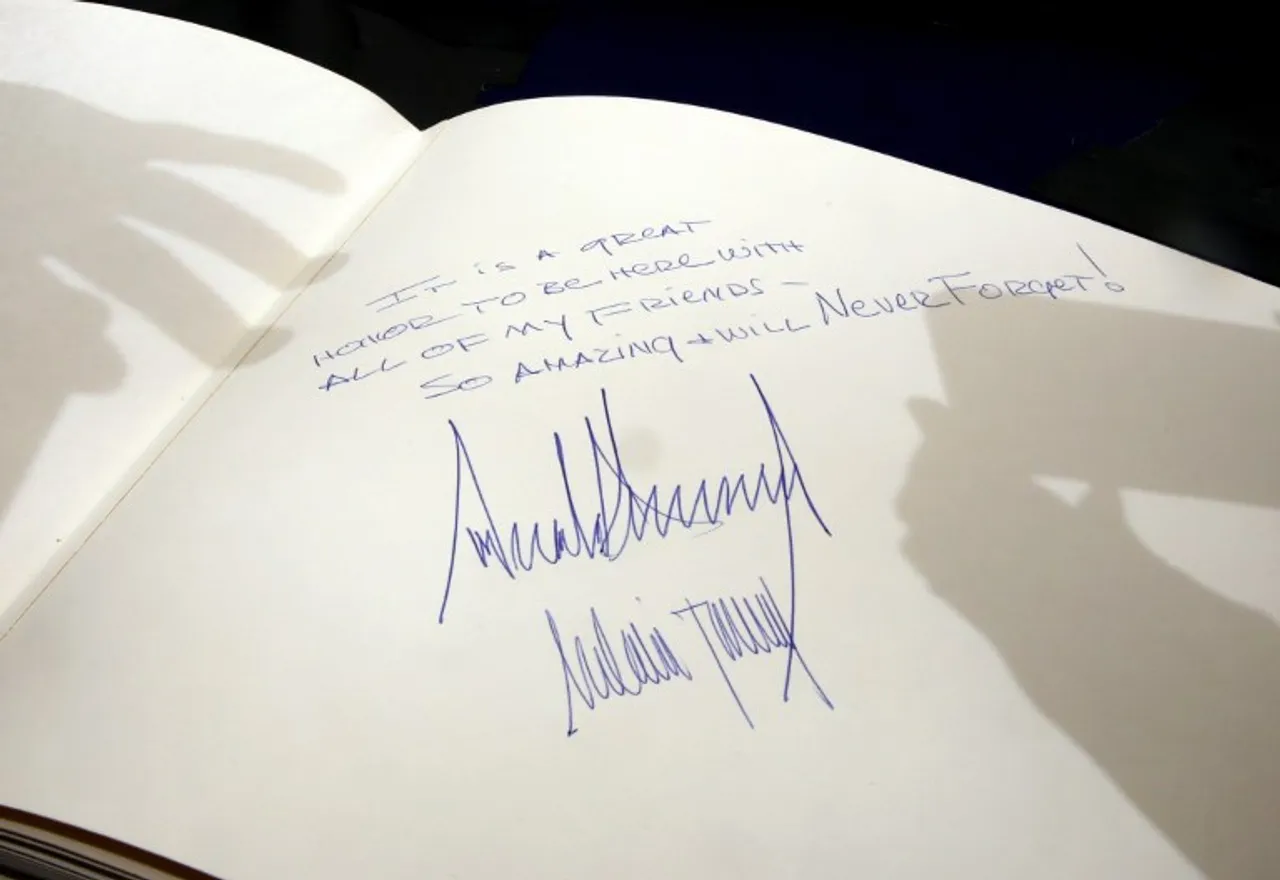 IT is A GREAT
HONOR TO BE HERE WITH
ALL OF MY FRIENDS -
SO AMAZING + WILL NEVER FORGET!
Donald Trump
Melania Trump